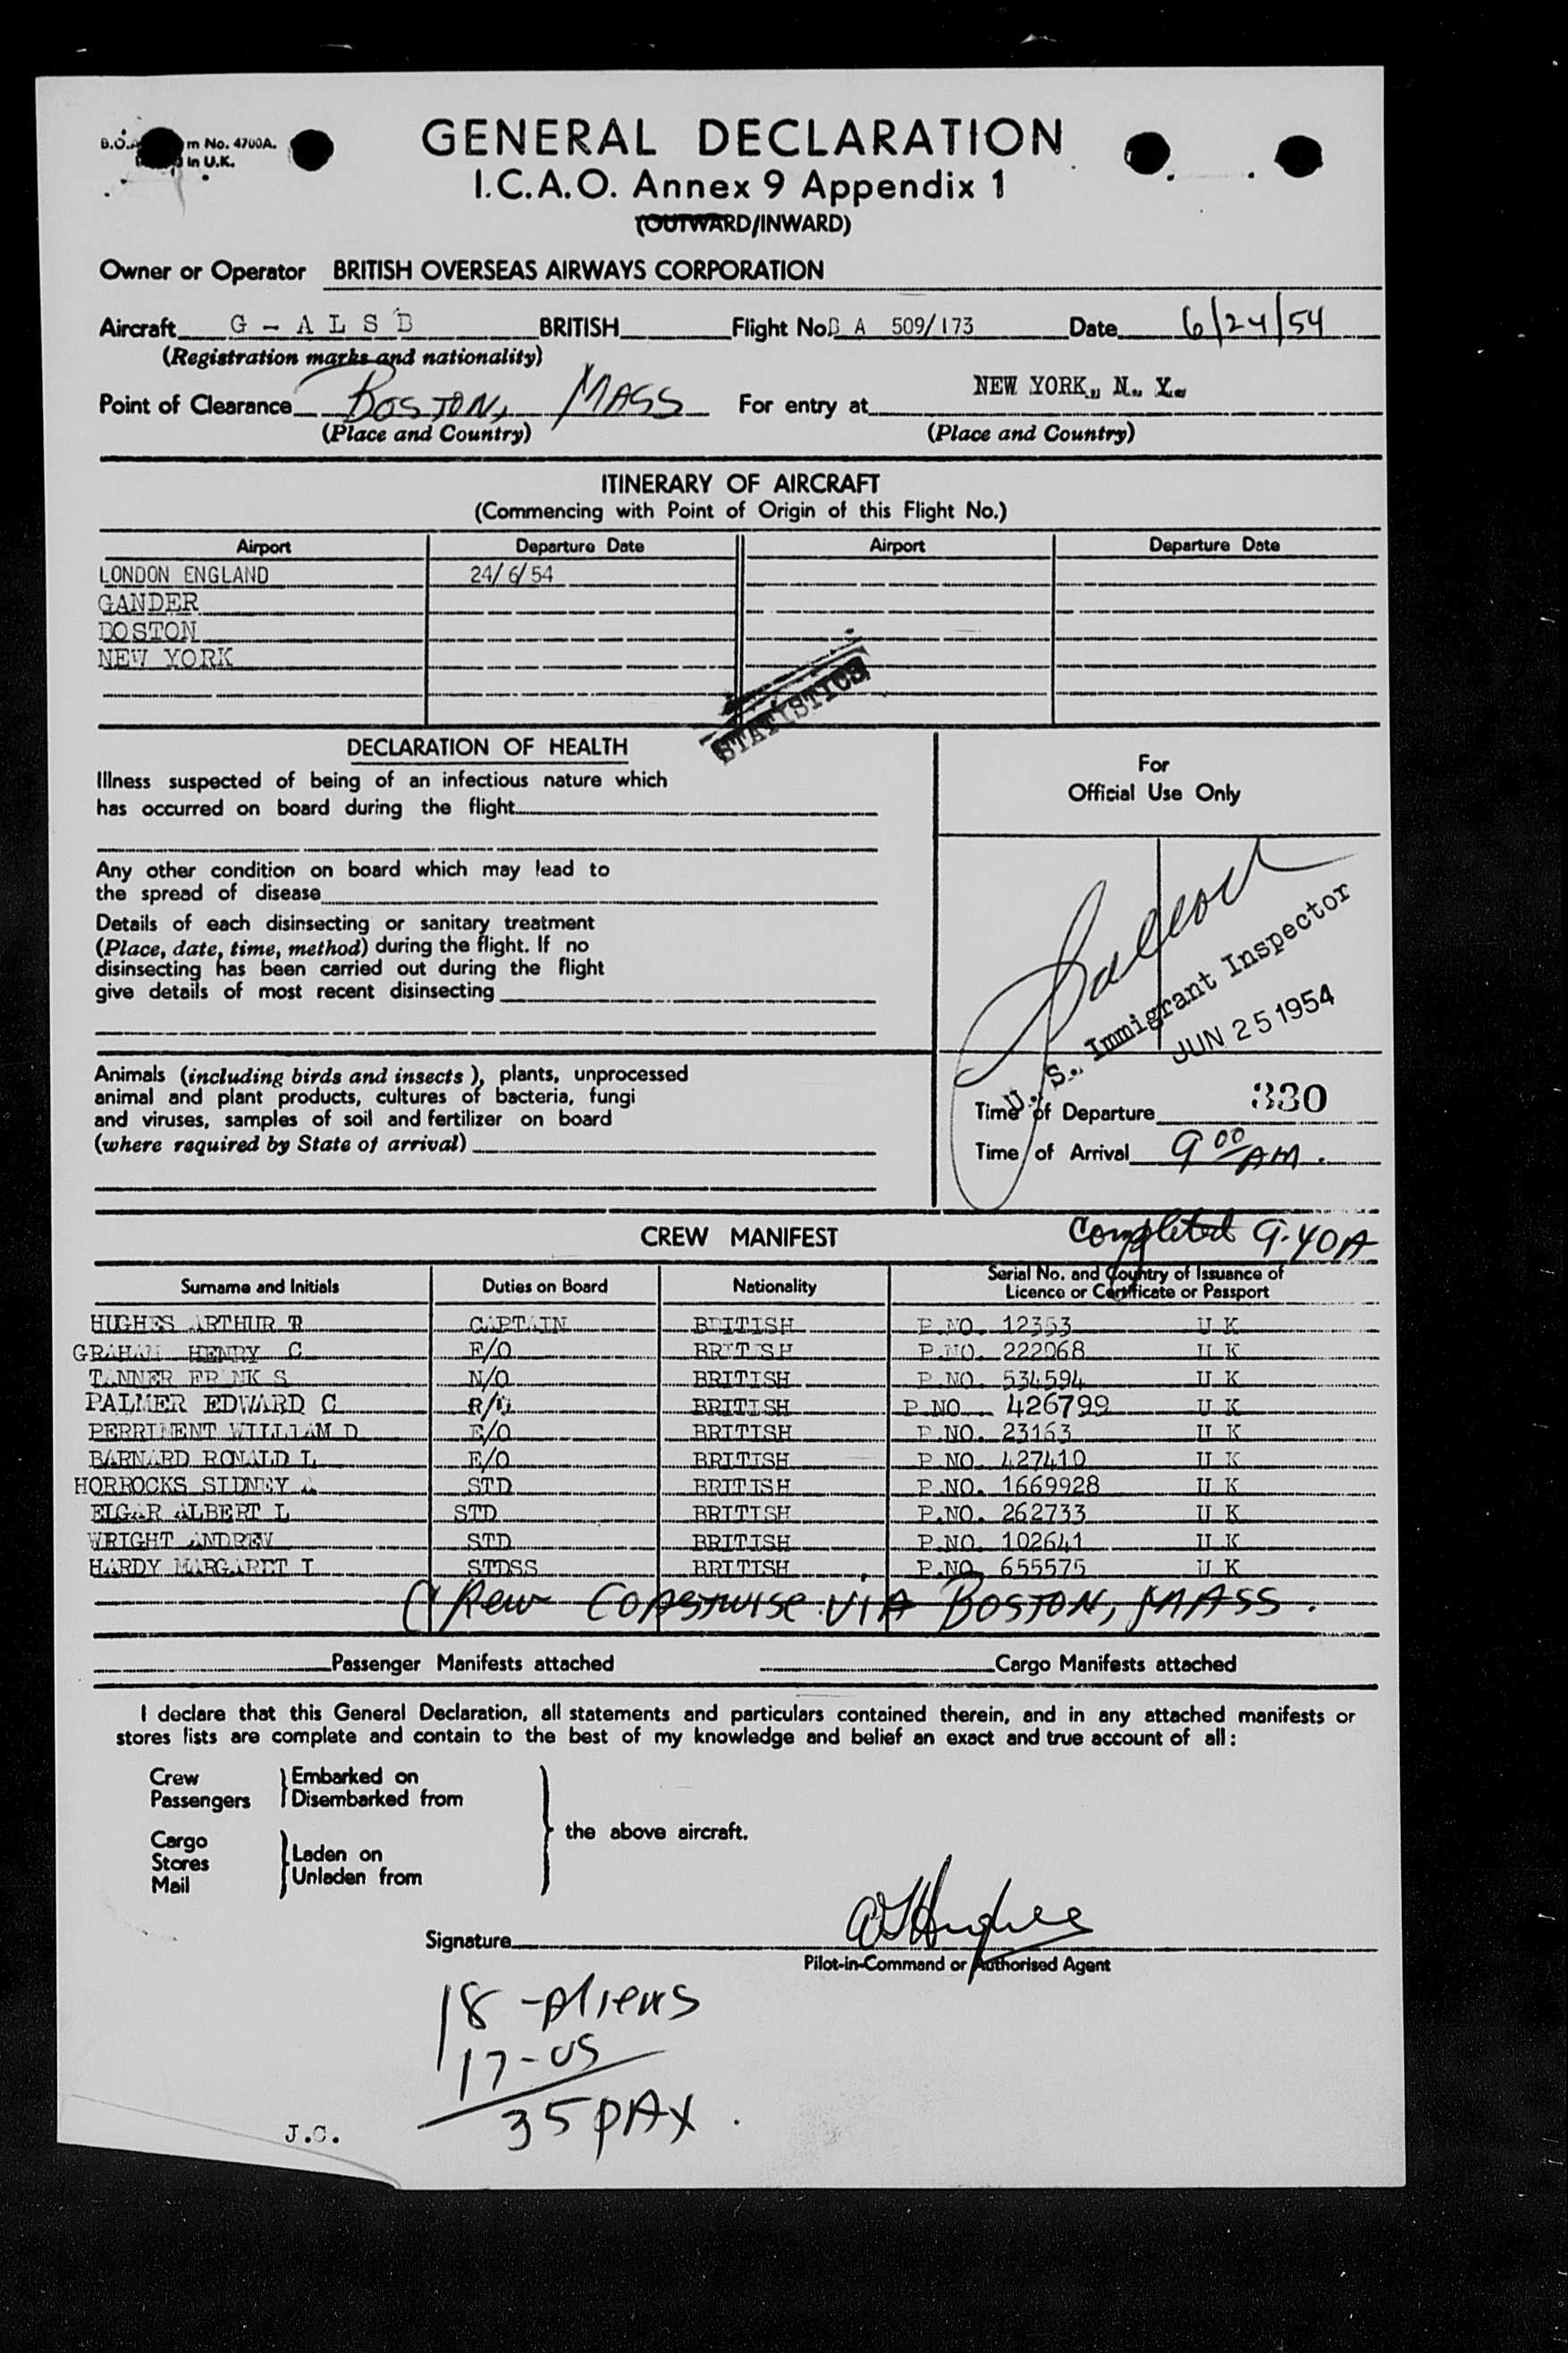 B.O.A m No. 4700A.
in U.K.
GENERAL DECLARATION
I.C.A.O. Annex 9 Appendix 1
(OUTWARD/INWARD)
Owner or Operator BRITISH OVERSEAS AIRWAYS CORPORATION
Aircraft G - A L S D BRITISH Flight No. B A 509/173 Date 6/24/54
(Registration marks and nationality)
Point of Clearance BOSTON, MASS For entry at NEW YORK, N. Y.
(Place and Country) (Place and Country)
ITINERARY OF AIRCRAFT
(Commencing with Point of Origin of this Flight No.)
Airport Departure Date Airport Departure Date
LONDON ENGLAND 24/6/54
GANDER
BOSTON
NEW YORK
STATISTICS
DECLARATION OF HEALTH
Illness suspected of being of an infectious nature which
has occurred on board during the flight
Any other condition on board which may lead to
the spread of disease
Details of each disinsecting or sanitary treatment
(Place, date, time, method) during the flight. If no
disinsecting has been carried out during the flight
give details of most recent disinsecting
For
Official Use Only
U. S. Immigrant Inspector
JUN 25 1954
Animals (including birds and insects), plants, unprocessed
animal and plant products, cultures of bacteria, fungi
and viruses, samples of soil and fertilizer on board
(where required by State of arrival)
Time of Departure 330
Time of Arrival 9 00 AM.
CREW MANIFEST Completed 9.40A
Surname and Initials Duties on Board Nationality Serial No. and Country of Issuance of
Licence or Certificate or Passport
HUGHES ARTHUR T CAPTAIN BRITISH P NO. 12353 U K
GRAHAM HENRY C F/O BRITISH P.NO. 222068 U K
TANNER FRANK S N/O BRITISH P NO. 534594 U K
PALMER EDWARD C R/O BRITISH P NO 426799 U K
PERRIMENT WILLIAM D E/O BRITISH P NO. 23163 U K
BARNARD RONALD L E/O BRITISH P NO. 427410 U K
HORROCKS SIDNEY A STD BRITISH P.NO. 1669928 U K
ELGAR ALBERT L STD BRITISH P.NO. 262733 U K
WRIGHT ANDREW STD BRITISH P.NO. 102641 U K
HARDY MARGARET I STDSS BRITISH P.NO. 655575 U K
Crew COASTWISE VIA BOSTON, MASS.
Passenger Manifests attached Cargo Manifests attached
I declare that this General Declaration, all statements and particulars contained therein, and in any attached manifests or
stores lists are complete and contain to the best of my knowledge and belief an exact and true account of all:
Crew Embarked on
Passengers Disembarked from
the above aircraft.
Cargo
Stores Laden on
Mail Unladen from
Signature A T Hughes
Pilot-in-Command or Authorised Agent
18 - Aliens
17 - US
35 PAX.
J.C.